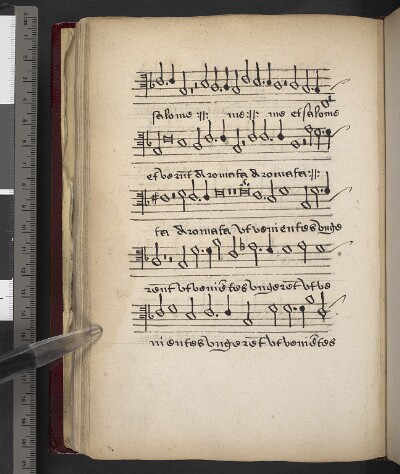 salome :||: me :||: me et salome
et verūt aromata aromata :||:
ta aromata vt venientes vnge
rent vt veniētes vngerēt vt ve
nientes vngerēt vt veniētes